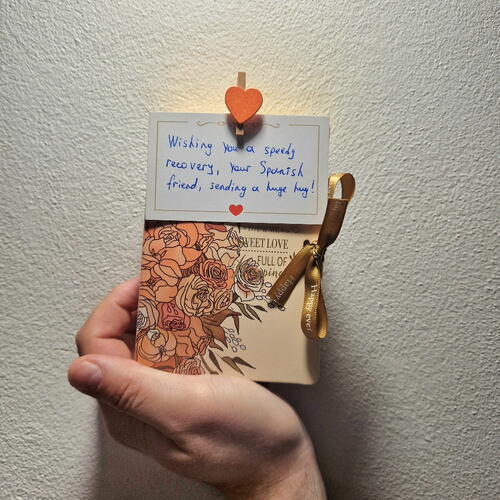 Wishing you a speedy
recovery, your Spanish
friend, sending a huge hug!
SWEET LOVE
FULL OF
Happy
Happy ever